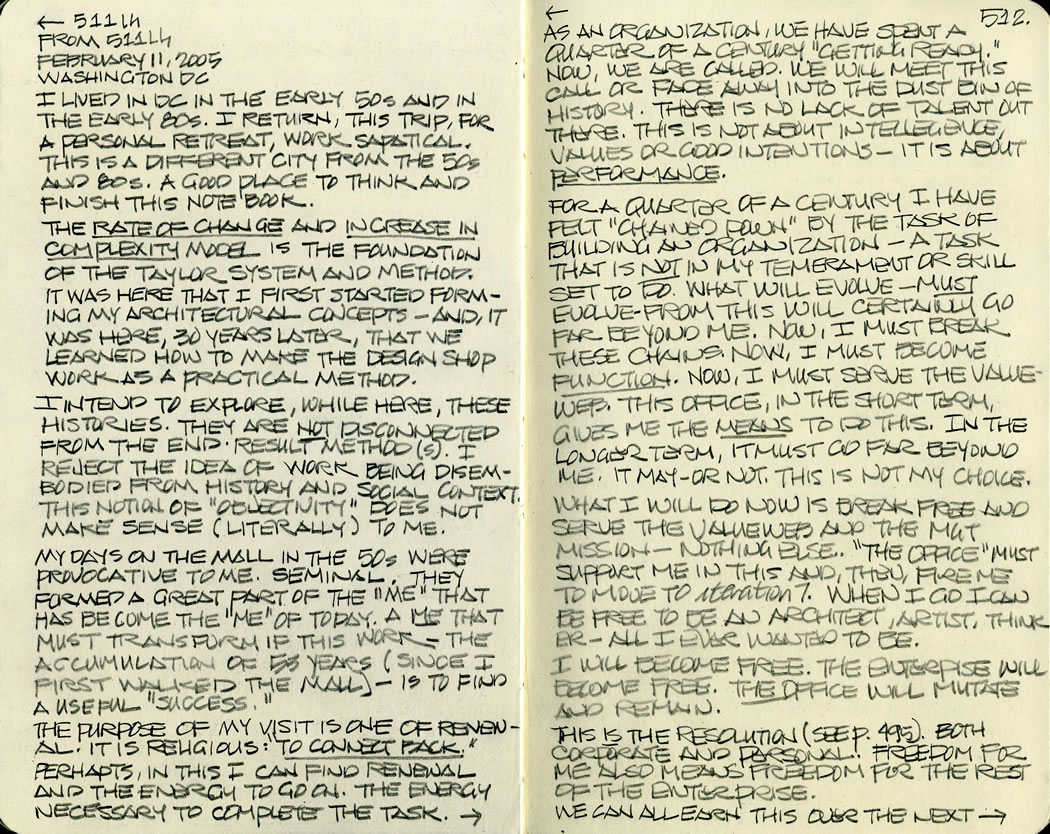 ← 511Lh
FROM 511Lh
FEBRUARY 11, 2005
WASHINGTON DC
I LIVED IN DC IN THE EARLY 50s AND IN
THE EARLY 80s. I RETURN, THIS TRIP, FOR
A PERSONAL RETREAT, WORK SABATICAL.
THIS IS A DIFFERENT CITY FROM THE 50s
AND 80s. A GOOD PLACE TO THINK AND
FINISH THIS NOTE BOOK.
THE RATE OF CHANGE AND INCREASE IN
COMPLEXITY MODEL IS THE FOUNDATION
OF THE TAYLOR SYSTEM AND METHOD.
IT WAS HERE THAT I FIRST STARTED FORM-
ING MY ARCHITECTURAL CONCEPTS - AND, IT
WAS HERE, 30 YEARS LATER, THAT WE
LEARNED HOW TO MAKE THE DESIGN SHOP
WORK AS A PRACTICAL METHOD.
I INTEND TO EXPLORE, WHILE HERE, THESE
HISTORIES. THEY ARE NOT DISCONNECTED
FROM THE END-RESULT METHOD(S). I
REJECT THE IDEA OF WORK BEING DISEM-
BODIED FROM HISTORY AND SOCIAL CONTEXT.
THIS NOTION OF "OBJECTIVITY" DOES NOT
MAKE SENSE (LITERALLY) TO ME.
MY DAYS ON THE MALL IN THE 50s WERE
PROVOCATIVE TO ME. SEMINAL. THEY
FORMED A GREAT PART OF THE "ME" THAT
HAS BECOME THE "ME" OF TODAY. A ME THAT
MUST TRANSFORM IF THIS WORK - THE
ACCUMULATION OF 53 YEARS (SINCE I
FIRST WALKED THE MALL) - IS TO FIND
A USEFUL "SUCCESS."
THE PURPOSE OF MY VISIT IS ONE OF RENEW-
AL. IT IS RELIGIOUS: TO CONNECT BACK."
PERHAPTS, IN THIS I CAN FIND RENEWAL
AND THE ENERGY TO GO ON. THE ENERGY
NECESSARY TO COMPLETE THE TASK. →
←
512.
AS AN ORGANIZATION, WE HAVE SPENT A
QUARTER OF A CENTURY "GETTING READY."
NOW, WE ARE CALLED. WE WILL MEET THIS
CALL OR FADE AWAY INTO THE DUST BIN OF
HISTORY. THERE IS NO LACK OF TALENT OUT
THERE. THIS IS NOT ABOUT INTELLEGENCE,
VALUES OR GOOD INTENTIONS - IT IS ABOUT
PERFORMANCE.
FOR A QUARTER OF A CENTURY I HAVE
FELT "CHAINED DOWN" BY THE TASK OF
BUILDING AN ORGANIZATION - A TASK
THAT IS NOT IN MY TEMERAMENT OR SKILL
SET TO DO. WHAT WILL EVOLVE - MUST
EVOLVE - FROM THIS WILL CERTAINLY GO
FAR BEYOND ME. NOW, I MUST BREAK
THESE CHAINS. NOW, I MUST BECOME
FUNCTION. NOW, I MUST SERVE THE VALUE-
WEB. THIS OFFICE, IN THE SHORT TERM,
GIVES ME THE MEANS TO DO THIS. IN THE
LONGER TERM, IT MUST GO FAR BEYOND
ME. IT MAY - OR NOT. THIS IS NOT MY CHOICE.
WHAT I WILL DO NOW IS BREAK FREE AND
SERVE THE VALUEWEB AND THE MGT
MISSION - NOTHING ELSE. "THE OFFICE" MUST
SUPPORT ME IN THIS AND, THEN, FIRE ME
TO MOVE TO iteration 7. WHEN I GO I CAN
BE FREE TO BE AN ARCHITECT, ARTIST, THINK
ER - ALL I EVER WANTED TO BE.
I WILL BECOME FREE. THE ENTERPRISE WILL
BECOME FREE. THE OFFICE WILL MUTATE
AND REMAIN.
THIS IS THE RESOLUTION (SEE P. 495). BOTH
CORPORATE AND PERSONAL. FREEDOM FOR
ME ALSO MEANS FREEDOM FOR THE REST
OF THE ENTERPRISE.
WE CAN ALL EARN THIS OVER THE NEXT →